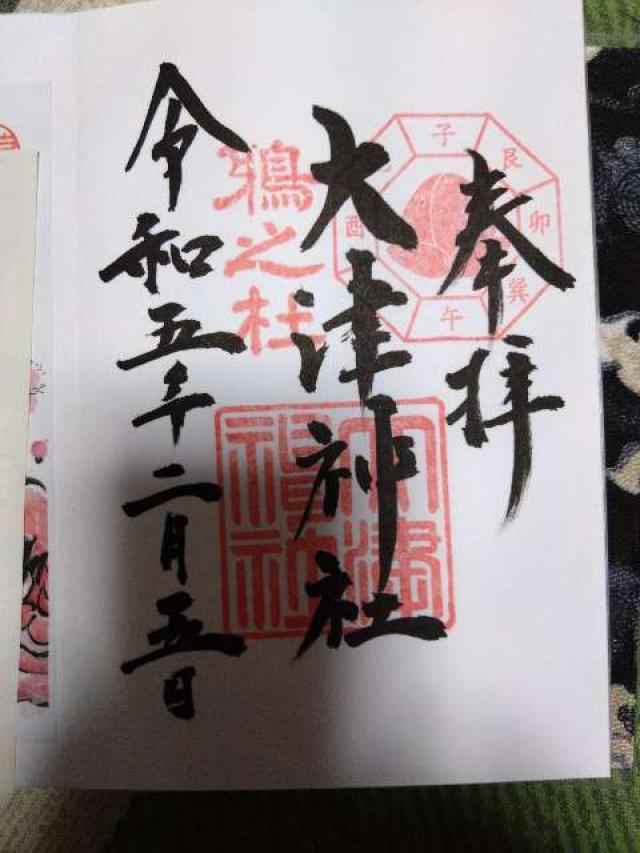 奉拝
子
艮
卯
巽
午
酉
大津神社
大津神社
鴉之杜
令和五年二月五日